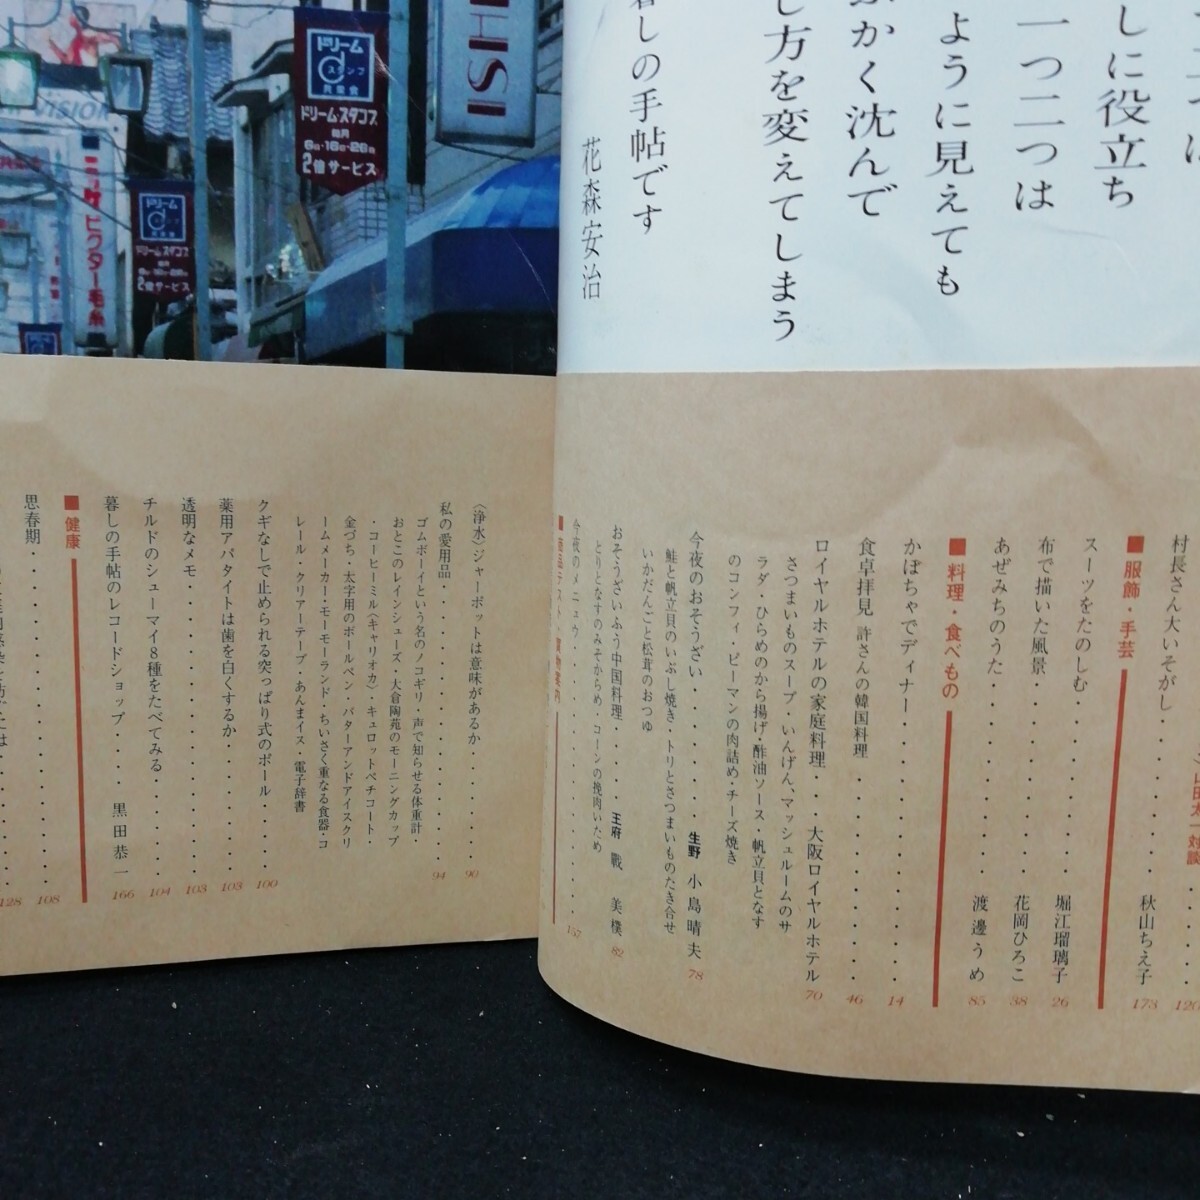 しに役立ち
一つ二つは
ように見えても
ふかく沈んで
し方を変えてしまう
暮しの手帖です
花森安治
村長さん大いそがし
120
山田太一対談
■服飾・手芸
秋山ちえ子 173
スーツをたのしむ
布で描いた風景 堀江瑠璃子 26
あぜみちのうた 花岡ひろこ 38
渡邊うめ 85
■料理・食べもの
かぼちゃでディナー 14
食卓拝見 許さんの韓国料理 46
ロイヤルホテルの家庭料理 大阪ロイヤルホテル 70
さつまいものスープ・いんげん、マッシュルームのサ
ラダ・ひらめのから揚げ・酢油ソース・帆立貝となす
のコンフィ・ピーマンの肉詰め・チーズ焼き
今夜のおそうざい 生野 小島晴夫 78
鮭と帆立貝のいぶし焼き・トリとさつまいものたき合せ
いかだんごと松茸のおつゆ
おそうざいふう中国料理 王府 戰美樸 82
とりとなすのみそからめ・コーンの挽肉いため
今夜のメニュウ 157
〈浄水〉ジャーポットは意味があるか 90
私の愛用品 94
ゴムボーイという名のノコギリ・声で知らせる体重計・
おとこのレインシューズ・大倉陶苑のモーニングカップ
・コーヒーミル〈キャリオカ〉・キュロットペチコート・
金づち・太字用のボールペン・バターアンドアイスクリ
ームメーカー・モーモーランド・ちいさく重なる食器・コ
レール・クリアーテープ・あんまイス・電子辞書
クギなしで止められる突っぱり式のポール 100
薬用アパタイトは歯を白くするか 103
透明なメモ 103
チルドのシューマイ8種をたべてみる 104
暮しの手帖のレコードショップ 黒田恭一 166
■健康
思春期 108
128
ドリーム
スタンプ
共栄会
ドリームスタンプ
毎月
6日・16日・26日
2倍サービス
HSI
VISION
ニッケビクター毛糸
ドリーム
ドリームスタンプ
2倍サービス